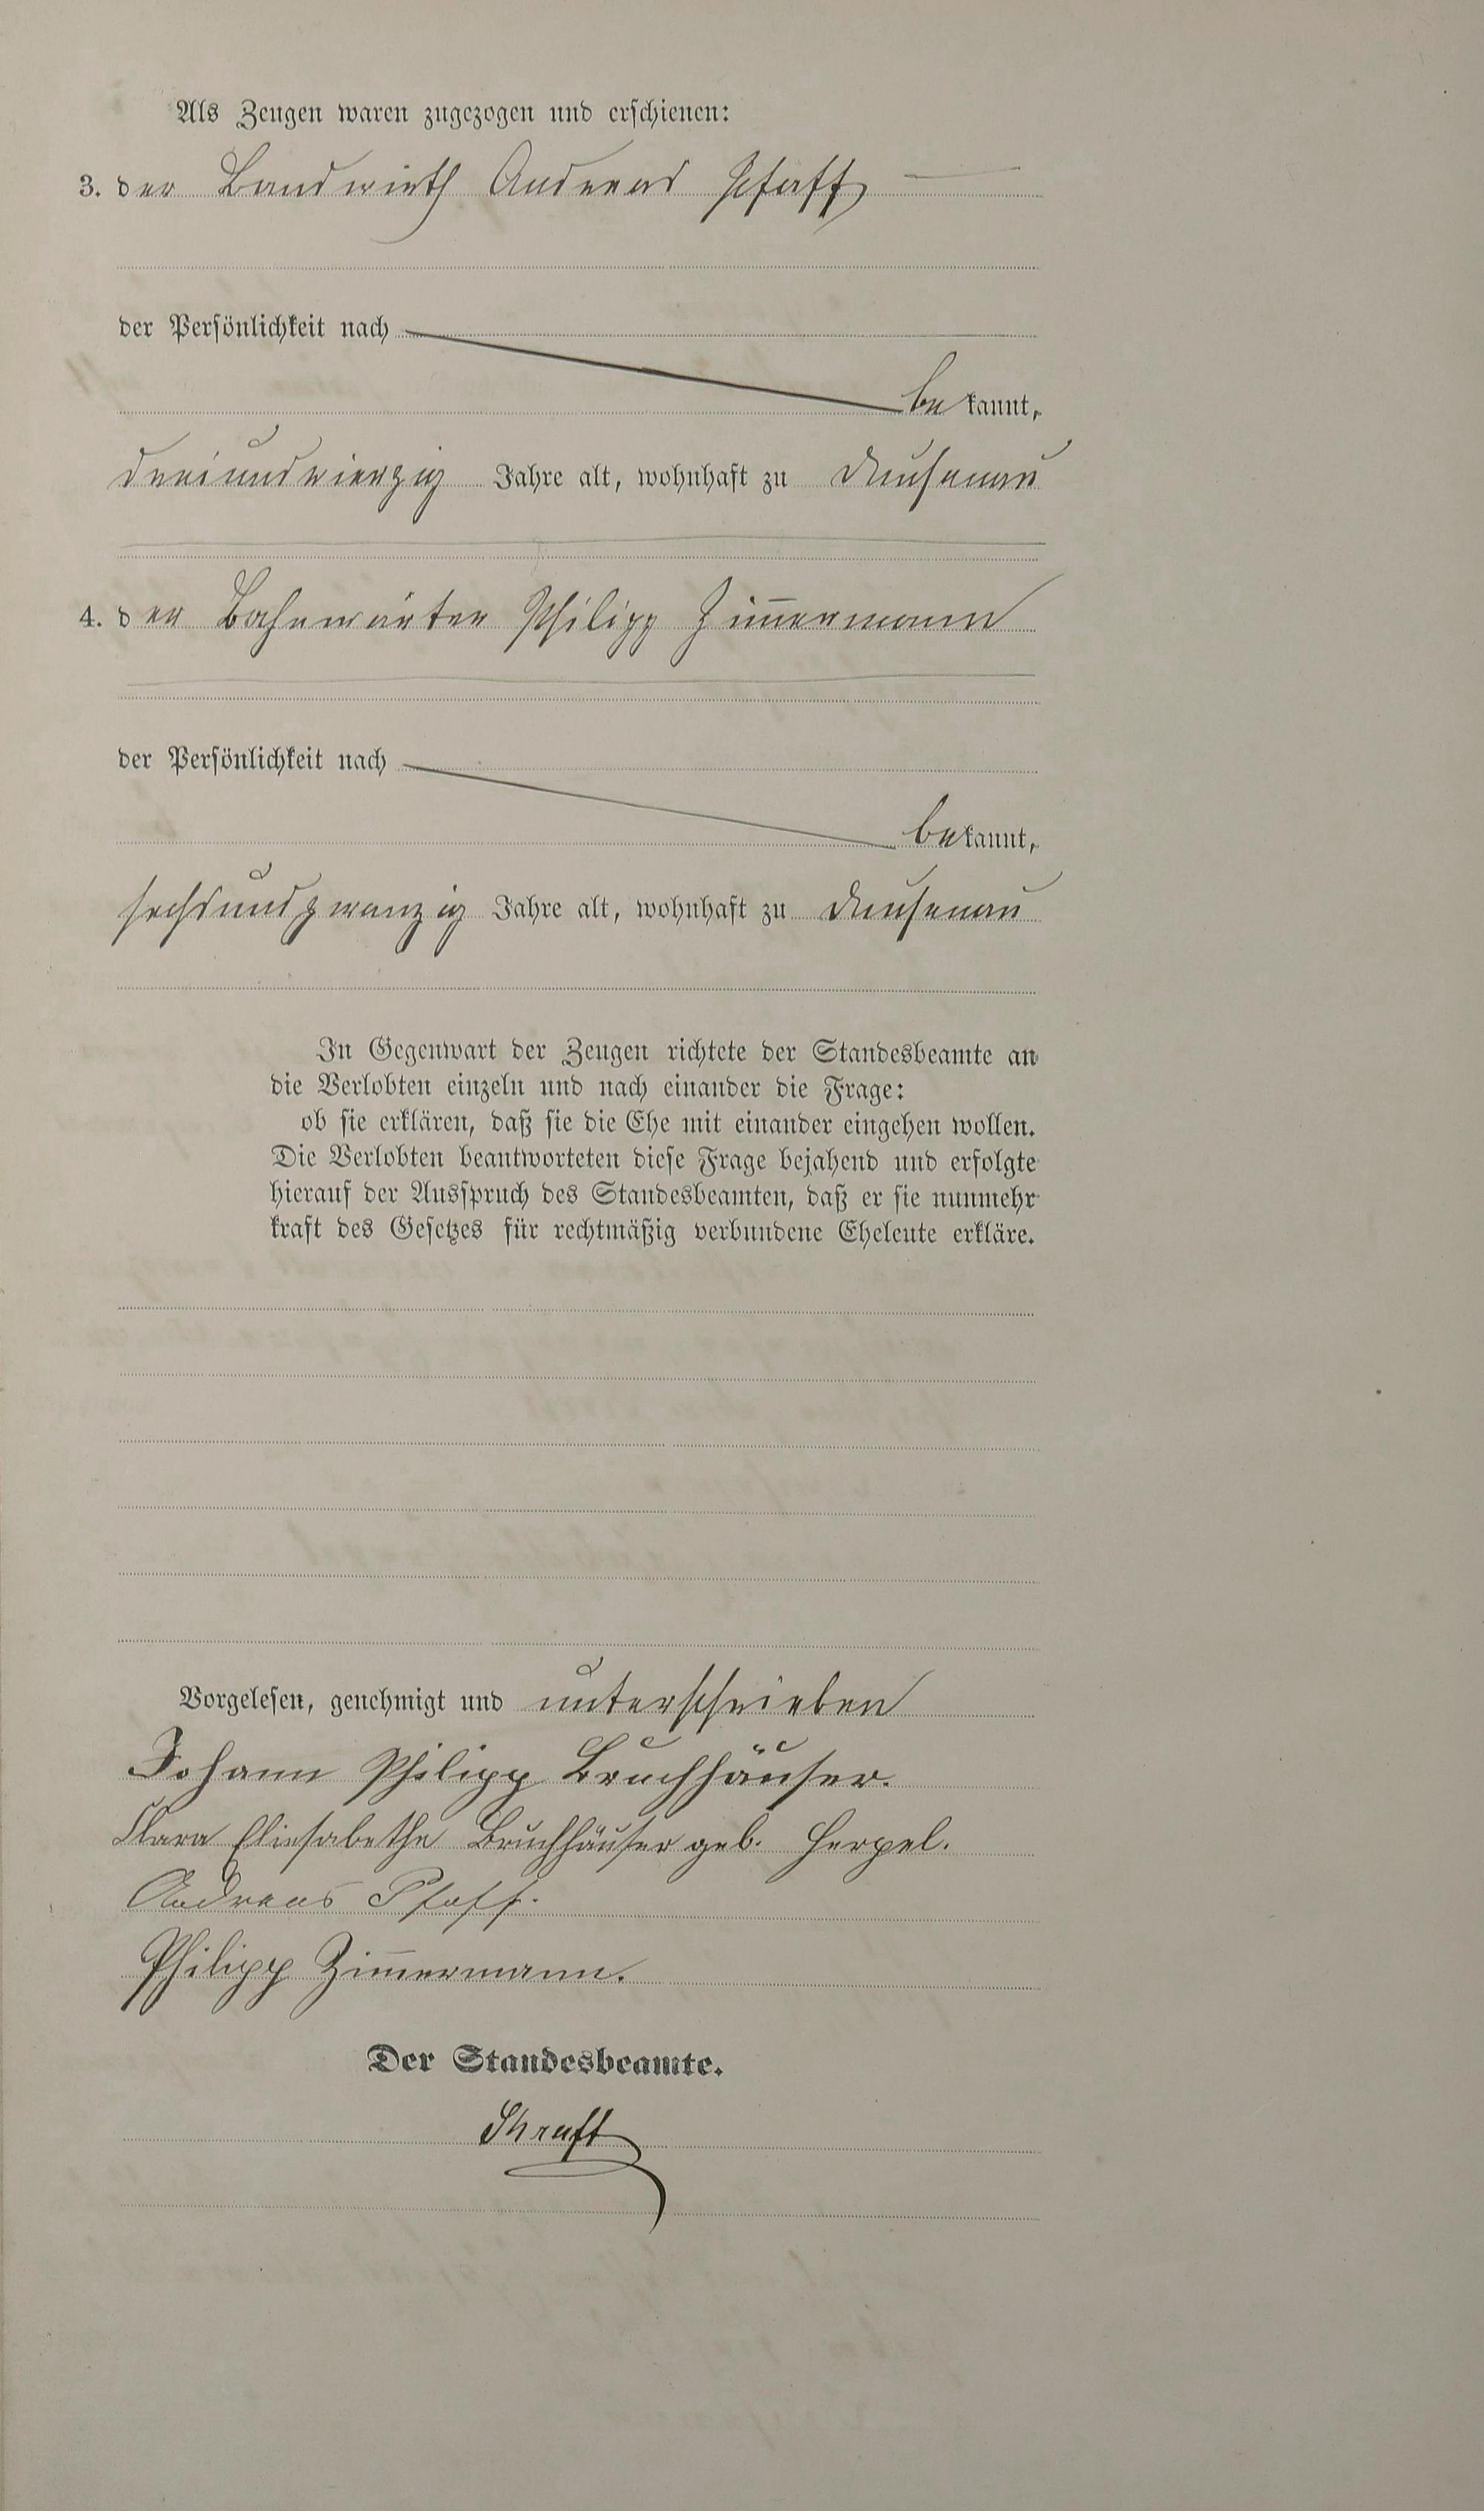 Als Zeugen waren zugezogen und erschienen:
3. der Landwirth Andreas Pfaff
der Persönlichkeit nach
be kannt,
dreiundvierzig Jahre alt, wohnhaft zu Dausenau
4. der Bahnwärter Philipp Zim̅ermann
der Persönlichkeit nach
bekannt,
sechsundzwanzig Jahre alt, wohnhaft zu Dausenau
In Gegenwart der Zeugen richtete der Standesbeamte an
die Verlobten einzeln und nach einander die Frage:
ob sie erklären, daß sie die Ehe mit einander eingehen wollen.
Die Verlobten beantworteten diese Frage bejahend und erfolgte
hierauf der Ausspruch des Standesbeamten, daß er sie nunmehr
kraft des Gesetzes für rechtmäßig verbundene Eheleute erkläre.
Vorgelesen, genehmigt und unterschrieben
Johann Philipp Bruchhäuser.
Clara Eliesabetha Bruchhäuser geb. Herpel.
Andreas Pfaff.
Philipp Zim̅ermann.
Der Standesbeamte.